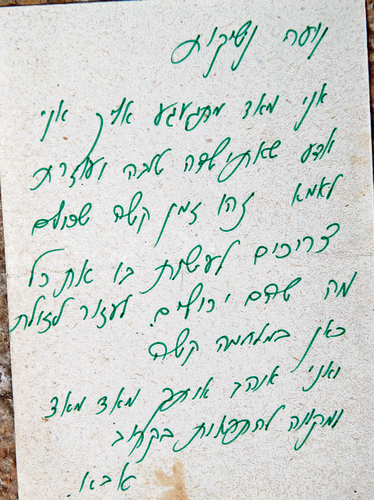 נועה נשיקות
אני מאד מתגעגע אליך אני
יודע שאת ילדה טובה ועוזרת
לאמא זהו זמן קשה שכולם
צריכים לעשות בו את כל
מה שהם יכולים לעזור לזולת
כאן במלחמה קשה
ואני אוהב אותך מאד מאד
ומקווה להתראות בקרוב
אבא